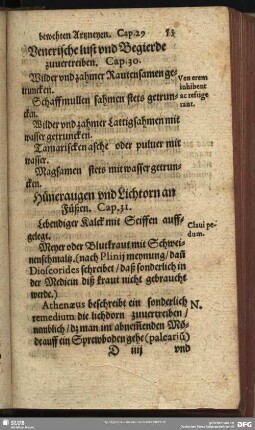 bewehten Artzneyen. Cap.29 53
Venerische lust vnd Begierde
zuuertreiben. Cap.30.
Wilder vnd zahmer Rautensamen ge-
truncken.
Ven erem
inhibent
ac refuge
rant.
Schaffmullen sahmen stets getrun-
cken.
Wilder vnd zahmer Lattigsahmen mit
wasser getruncken.
Tamariscken asche oder puluer mit
wasser.
Magsamen stets mit wasser getrun-
cken.
Hüneraugen vnd Liechtorn an
Füßen. Cap.31.
Lebendiger Kalck mit Seiffen auff-
gelegt.
Claui pe-
dum.
Meyer oder Blutkraut mit Schwei-
nenschmaltz. (nach Plinij meynung / dañ
Dioscorides schreibet / daß sonderlich in
der Medicin diß kraut nicht gebraucht
werde.)
Athenæus beschreibt ein sonderlich
N.
remedium die liechdorn zuuertreiben /
nemblich / dz man im abnemenden Mö-
den auff ein Sprewboden gehe (paleariũ)
D iiij vnd
SLUB
DFG